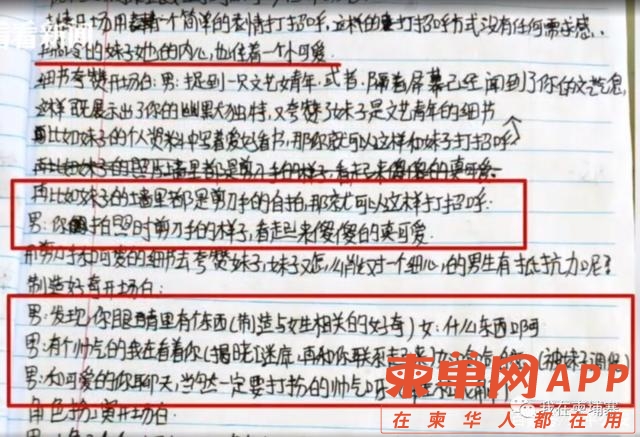 看看新闻
直接开场用 一个简单的表情打招呼,这样的 打招呼方式没有任何需求感.
再高冷的妹子她的内心,也住着一个小可爱.
细节夸赞开场白:男:捉到一只文艺女青年,或者,隔着屏幕已经闻到了你的文艺气息,
这样既展示出了你的幽默大独特,又夸赞了妹子是文艺青年的细节
再比如妹子的个人资料中写着爱好看书,那你就可以这样和妹子打招呼
再比如妹子的照片墙里都是剪刀手的样子,看起来傻傻的真可爱.
再比如妹子的墙里都是剪刀手的自拍,那就可以这样打招呼:
男:你 拍照时剪刀手的样子,看起来傻傻的真可爱.
用剪刀手和可爱的细节去夸赞妹子,妹子又怎么能对一个细心的男生有抵抗力呢?
制造好奇开场白:
男:发现你眼睛里有个东西(制造与女生相关的好奇)女:什么东西啊
男:有个帅气的我在看着你(揭晓谜底,再和你联系起 (被妹子调侃)
男:和可爱的你聊天,当然一定要打扮的帅气
角色扮演开场白:
柬单网APP
在柬华人都在用
我在柬埔寨